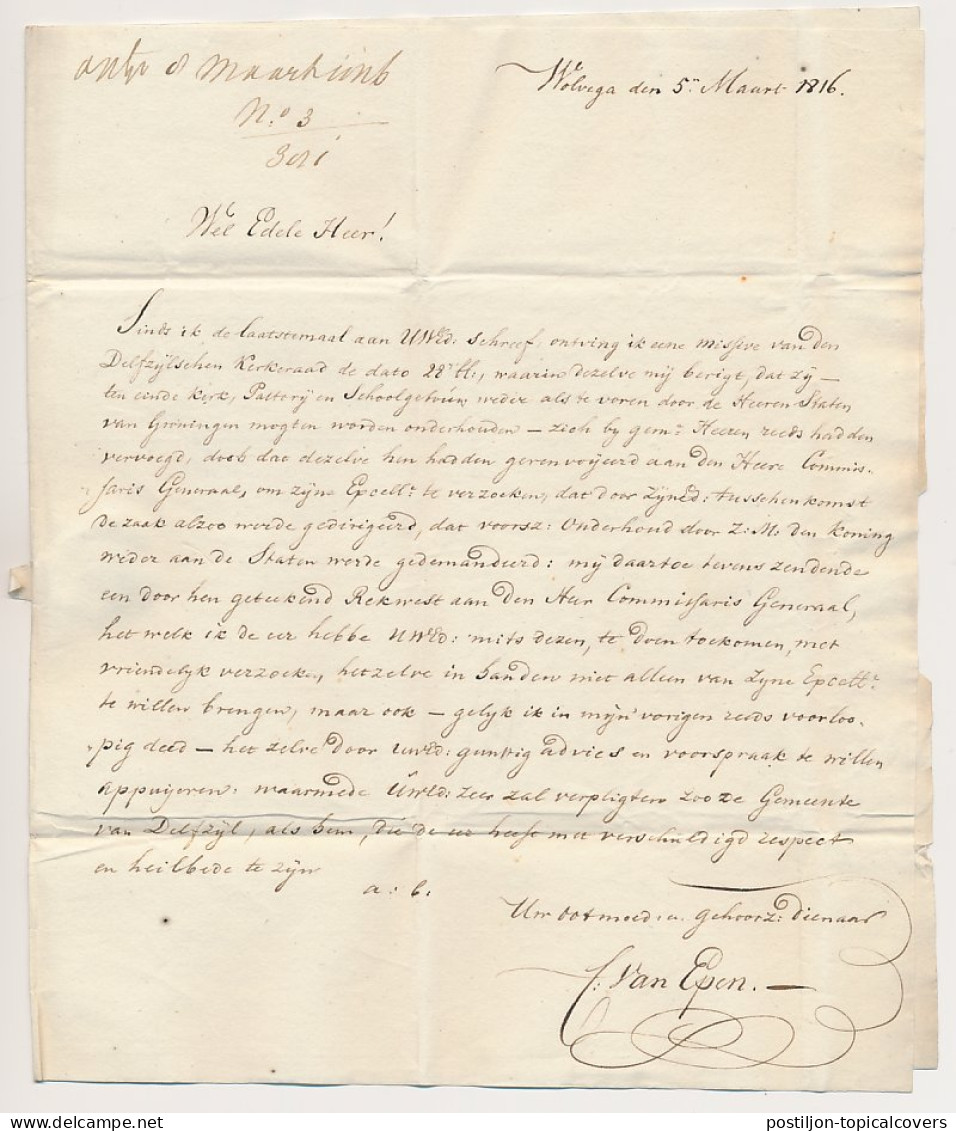 ontv 8 Maart
N.o 3
Wolvega den 5.n Maart 1816.
Wel Edele Heer!
Sints ik de laatstemaal aan UWEd: schreef, ontving ik eene missive van den
Delfzÿlschen Kerkeraad de dato 28 waarin dezelve mÿ berigt, dat zÿ —
ten einde Kerk, Pastorÿ en Schoolgebouw weder als te voren door de Heeren Staten
van Groningen mogten worden onderhouden — zich by gem.e Heeren reeds hadden
vervoegd, doch dat dezelve hen hadden gerenvoijeerd aan den Heere Commis-
saris Generaal, om zÿne Excell.e te verzoeken, dat door ZynEd: tusschenkomst
de zaak alzoo werde gedirigeerd, dat voorsz: Onderhoud door Z: M: den Koning
weder aan de Staten werde gedemandeerd: mÿ daartoe tevens zendende
een door hen geteekend Rekwest aan den Heer Commissaris Generaal,
het welk ik de eer hebbe UWEd: mits dezen, te doen toekomen, met
vriendelÿk verzoek, hetzelve in handen niet alleen van Zyne Excell.e
te willen brengen, maar ook — gelÿk ik in mÿn vorigen reeds voorloo-
pig deed — het zelve door UWEd: gunstig advies en voorspraak te willen
appuijeren: waarmede UWEd: zeer zal verpligten zoo de Gemeente
van Delfzÿl, als hem, die de eer heeft met verschuldigd respect
en heilbede te zÿn
a: b:
Uw ootmoed: en gehoorz: dienaar
C: Van Epen. —
postiljon-topicalcovers